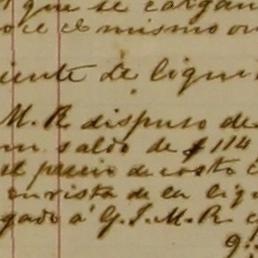 que se cargan
el mismo
iente de liqui
M. R dispuso de
un saldo de $114
el precio de costo
en vista de la liq
gado á G. I. M. R